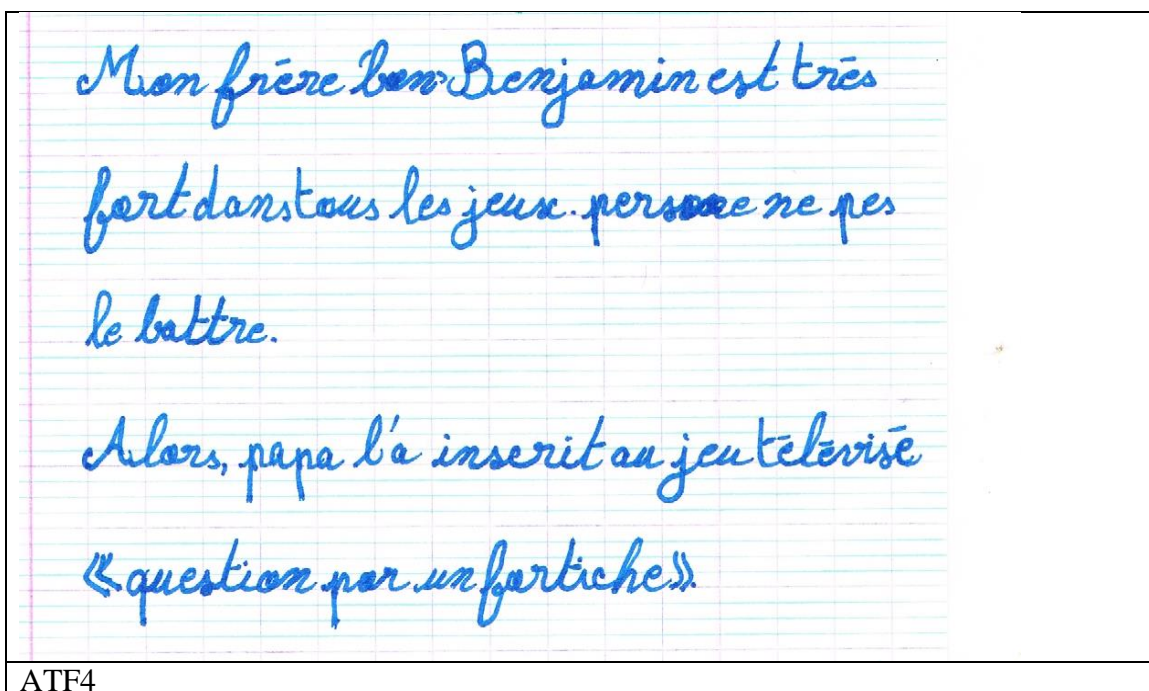 Mon frère bon Benjamin est très
fort dans tous les jeux. persone ne pes
le battre.
Alors, papa l'a inscrit au jeu télévisé
«question por un fortiche».
ATF4